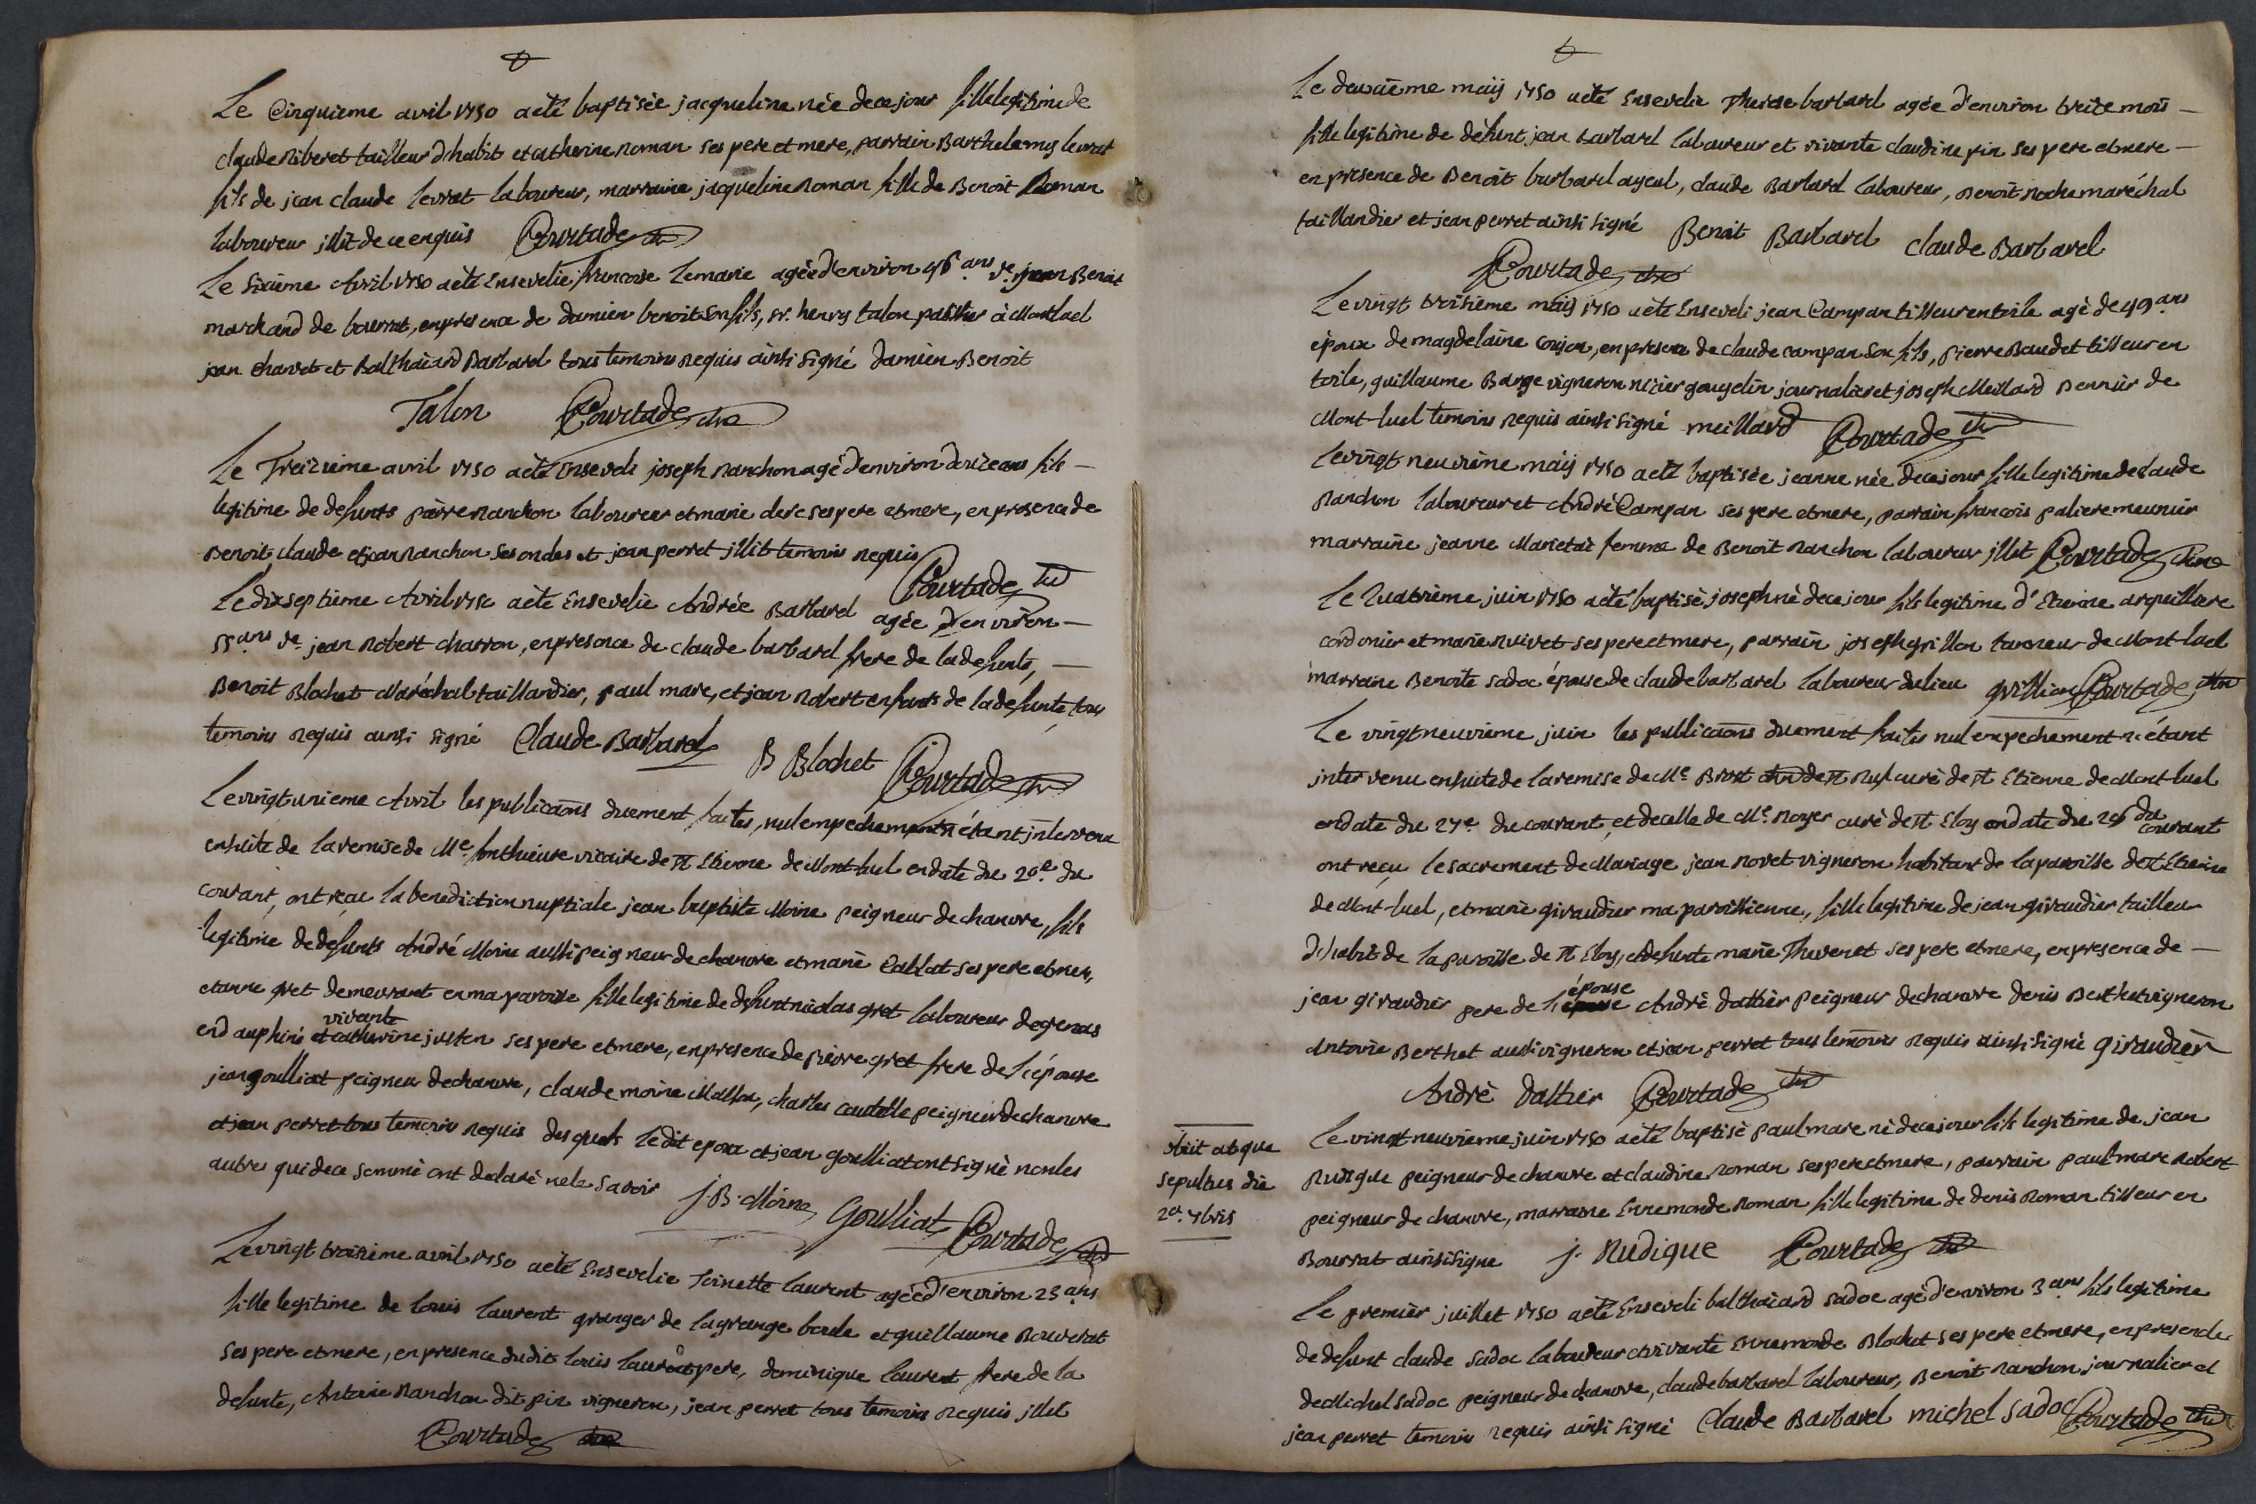 Le Cinquieme avril 1750 a eté baptisée jacqueline née de ce jour fille legitime de
claude Riberet tailleur d'habit et catherine roman ses pere et mere, parrain Barthelemy levrat
fils de jean claude levrat laboureur, marraine jacqueline Roman fille de Benoit Roman
laboureur illit de ce enquis Courtade
Le Sixieme Avril 1750 a eté Ensevelie francoise Lemarie agée d'environ ans ve. jean Benoit
marchand de bourrat, en presence de damien benoit son fils, sr. henry talon a Montluel
jean Charvet et Balthazard Barbarel tous temoins Requis ainsi Signé damien Benoit
Talon Courtade
Le Treizieme avril 1750 a eté Enseveli joseph Ranchon agé d'environ douze ans fils
legitime de defunts pierre Ranchon laboureur et marie clerc ses pere et mere, en presence de
Benoit, claude et jean Ranchon ses oncles et jean perret illit. temoins requis
Courtade
Le dix septieme Avril 1750 a eté Ensevelie Andrée Barbarel agée d'environ
55 ans ve. jean Robert charron, en presence de claude barbarel frere de la defunte,
Benoit Blochet Maréchal taillandier, paul marc, et jean Robert enfants de la defunte, tous
temoins Requis ainsi signé Claude Barbarel B Blochet Courtade
Le vingt unieme Avril les publicaons duement faites, nul empéchement n'étant intervenu
ensuite de la remise de Me. fonthieure vicaire de st Etienne de Mont-luel en date du 20e. du
courant, ont reçu la benediction nuptiale jean baptiste Moine peigneur de chanvre, fils
legitime de defunts André Moine aussi peigneur de chanvre et marie Callat ses pere et mere,
et anne gret demeurant en ma paroisse fille legitime de defunt nicolas gret laboureur de genas
en dauphiné et vivante catherine justen ses pere et mere, en presence de pierre gret frere de l'épouse
jean goulliat peigneur de chanvre, claude moine, charles peigneur de chanvre
et jean perret tous temoins requis des quels le dit epoux et jean goulliat ont signé non les
autres qui de ce sommé ont declaré ne le savoir J.B. Moine Goulliat Courtade
Le vingt troisieme avril 1750 a eté Ensevelie Toinette laurent agée d'environ 25 ans
fille legitime de louis laurent granger de la grange boule et guillaume Bouverat
ses pere et mere, en presence du dit louis laurent pere, dominique laurent frere de la
defunte, Antoine Ranchon dit pin vigneron, jean perret tous temoins Requis illit.
Courtade
Le deuxieme maij 1750 a eté Ensevelie Therese barbarel agée d'environ treize mois
fille legitime de défunt jean barbarel laboureur et vivante claudine pin ses pere et mere
en presence de Benoit barbarel ayeul, claude Barbarel laboureur, Benoit Roche maréchal
taillandier et jean perret ainsi signé Benoit Barbarel claude Barbarel
Courtade
Le vingt troisieme maij 1750 a eté Enseveli jean Campan tilleur en toile agé de 49 ans
époux de magdelaine, en presence de claude campan son fils, pierre Baudet tilleur en
toile, guillaume Barge vigneron nizier gougelin journalier et joseph Meillard de
Mont-luel temoins requis ainsi signé meillard Courtade
Le vingt neuvieme maij 1750 a eté baptisée jeanne née de ce jour fille legitime de claude
Ranchon laboureur et André Campan ses pere et mere, parrain francois paliere meunier
marraine jeanne Marietat femme de Benoit Ranchon laboureur illit Courtade
Le Quatrieme juin 1750 a eté baptisé joseph né de ce jour fils legitime d'Etienne arquilliere
cordonier et marie Rivet ses pere et mere, parrain joseph grillon tanneur de Mont-luel
marraine Benoite sadoc épouse de claude barbarel laboureur du lieu grillion Courtade
Le vingt neuvieme juin les publicaons duement faites nul empechement n'étant
intervenu ensuite de la remise de Me. Brost curé de st Etienne de Mont-luel
en date du 27e. du courant, et de celle de Me. Royer curé de st Eloy en date du 29 du courant
ont reçu le sacrement de Mariage jean novet vigneron habitant de la paroisse de st Etienne
de Mont-luel, et marie giraudier ma paroissienne, fille legitime de jean giraudier tailleur
d'habit de la paroisse de st Eloy, et defunte marie Thevenet ses pere et mere, en presence de
jean giraudier pere de l'épouse André dattier peigneur de chanvre denis Berthet vigneron
Antoine Berthet aussi vigneron et jean perret tous temoins requis ainsi signé giraudier
André dattier Courtade
Obiit atque
sepultus die
2a. 7bris
Le vingt neuvieme juin 1750 a eté baptisé paul marc né de ce jour fils legitime de jean
Rudigue peigneur de chanvre et claudine roman ses pere et mere, parrain paul marc Robert
peigneur de chanvre, marraine Ennemonde Roman fille legitime de denis Roman tilleur en
Bourrat ainsi signé j. Rudigue Courtade
Le premier juillet 1750 a eté Enseveli balthazard sadoc agé d'environ 3 ans fils legitime
de defunt claude sadoc laboureur et vivante Ennemonde Blochet ses pere et mere, en presence
de Michel Sadoc peigneur de chanvre, claude barbarel laboureur, Benoit Ranchon journalier et
jean perret temoins requis ainsi signé Claude Barbarel michel sadoc Courtade